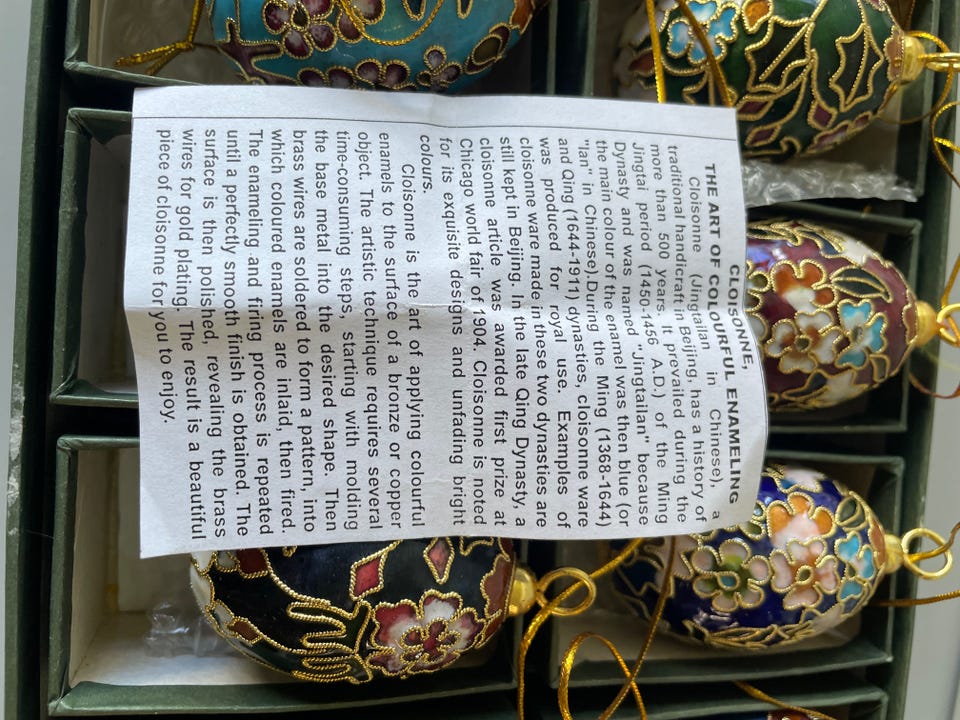 CLOISONNE,
THE ART OF COLOURFUL ENAMELING
Cloisonne (Jingtailan in Chinese), a
traditional handicraft in Beijing, has a history of
more than 500 years. It prevailed during the
Jingtai period (1450-1456 A.D.) of the Ming
Dynasty and was named "Jingtailan" because
the main colour of the enamel was then blue (or
"lan" in Chinese).During the Ming (1368-1644)
and Qing (1644-1911) dynasties, cloisonne ware
was produced for royal use. Examples of
cloisonne ware made in these two dynasties are
still kept in Beijing. In the late Qing Dynasty, a
cloisonne article was awarded first prize at
Chicago world fair of 1904. Cloisonne is noted
for its exquisite designs and unfading bright
colours.
Cloisonne is the art of applying colourful
enamels to the surface of a bronze or copper
object. The artistic technique requires several
time-consuming steps, starting with molding
the base metal into the desired shape. Then
brass wires are soldered to form a pattern, into
which coloured enamels are inlaid, then fired.
The enameling and firing process is repeated
until a perfectly smooth finish is obtained. The
surface is then polished, revealing the brass
wires for gold plating. The result is a beautiful
piece of cloisonne for you to enjoy.